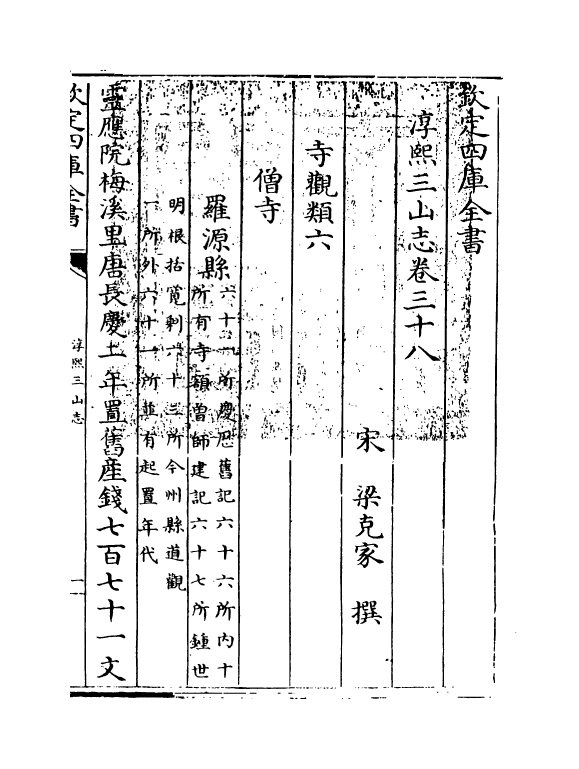 欽定四庫全書
淳熙三山志卷三十八
宋 梁克家 撰
寺觀類六
僧寺
羅源縣 六十一所慶厯舊記六十六所内十
所有寺額曾師建記六十七所鍾世
明根括寛剰六十三所今州縣道觀
一所外六十一所並有起置年代
靈應院梅溪里唐長慶年置舊產錢七百七十一文
欽定四庫全書
淳熙三山志
一